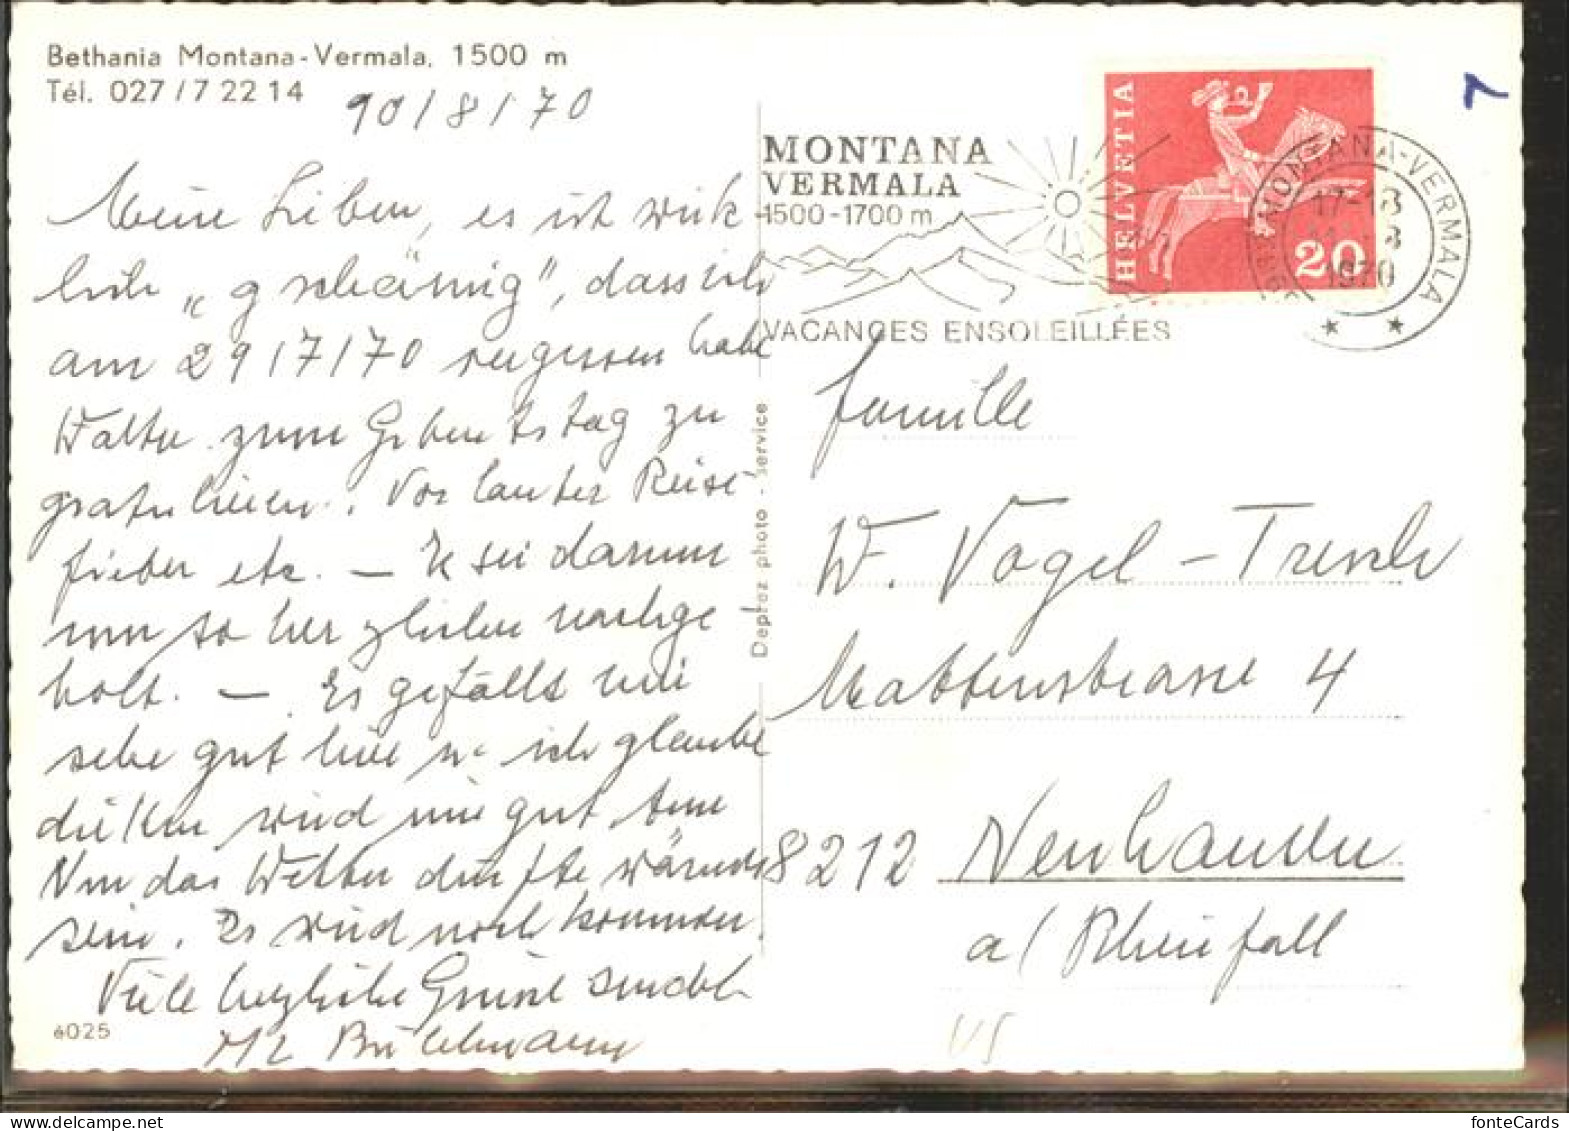 Bethania Montana-Vermala, 1500 m
Tél. 027/7 22 14
10/8/70
Meine Lieben, es ist wirk
lich „gschämig", dass ich
am 29/7/70 vergessen habe
Walter zum Geburtstag zu
gratulieren. Vor lauter Reise
fieber etc. — Es sei darum
nun so herzlichen nachge
holt. — Es gefällt mir
sehr gut hier u. ich glaube
die Kur wird mir gut tun
Nur das Wetter dürfte wärmer
sein. Es wird noch kommen.
Viele herzliche Grüsse sendet
Bühlmann
6025
Deprez photo - service
MONTANA
VERMALA
1500-1700 m
VACANCES ENSOLEILLÉES
HELVETIA
20
MONTANA-VERMALA
17-18
1970
7
Famille
W. Vogel - Tresch
Mattenstrasse 4
8212 Neuhausen
a/ Rheinfall
fonteCards
www.delcampe.net